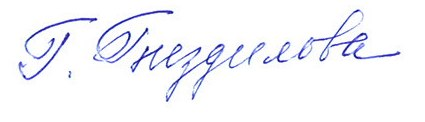 Г. Гнездилова